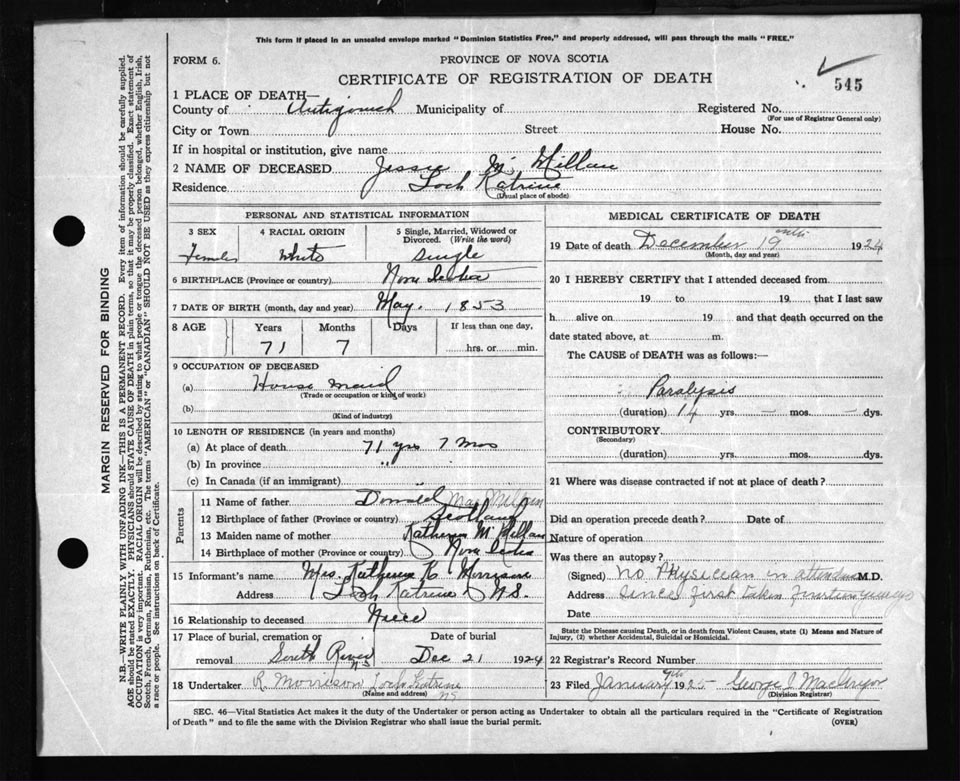 This form if placed in an unsealed envelope marked "Dominion Statistics Free," and properly addressed, will pass through the mails "FREE."
FORM 6.
PROVINCE OF NOVA SCOTIA
CERTIFICATE OF REGISTRATION OF DEATH
545
1 PLACE OF DEATH—
County of Antigonish Municipality of Registered No.
(For use of Registrar General only)
City or Town Street House No.
If in hospital or institution, give name
2 NAME OF DECEASED Jessie Mc Millan
Residence Loch Katrine
(Usual place of abode)
PERSONAL AND STATISTICAL INFORMATION
3 SEX 4 RACIAL ORIGIN 5 Single, Married, Widowed or Divorced. (Write the word)
Female White Single
6 BIRTHPLACE (Province or country) Nova Scotia
7 DATE OF BIRTH (month, day and year) May. 1853
8 AGE Years Months Days If less than one day,
71 7 hrs. or min.
9 OCCUPATION OF DECEASED
(a) House maid
(Trade or occupation or kind of work)
(b)
(Kind of industry)
10 LENGTH OF RESIDENCE (in years and months)
(a) At place of death 71 yrs 7 mos
(b) In province "
(c) In Canada (if an immigrant)
Parents
11 Name of father Donald MacMillan
12 Birthplace of father (Province or country) Scotland
13 Maiden name of mother Katherine McMillan
14 Birthplace of mother (Province or country) Nova Scotia
15 Informant's name Mrs. Katherine K Morrison
Address Loch Katrine N.S.
16 Relationship to deceased Niece
17 Place of burial, cremation or removal South River NS Date of burial Dec 21 1924
18 Undertaker R Morrison Loch Katrine NS
(Name and address)
MEDICAL CERTIFICATE OF DEATH
19 Date of death December 19 1924
(Month, day and year)
20 I HEREBY CERTIFY that I attended deceased from
19 to 19 that I last saw
h alive on 19 and that death occurred on the
date stated above, at m.
The CAUSE of DEATH was as follows:—
Paralysis
(duration) 14 yrs. – mos. – dys.
CONTRIBUTORY
(Secondary)
(duration) yrs. mos. dys.
21 Where was disease contracted if not at place of death?
Did an operation precede death? Date of
Nature of operation
Was there an autopsy?
(Signed) No Physician in attendance M.D.
Address Since first taken years
Date
State the Disease causing Death, or in death from Violent Causes, state (1) Means and Nature of Injury, (2) whether Accidental, Suicidal or Homicidal.
22 Registrar's Record Number
23 Filed January 1925 George J MacGregor
(Division Registrar)
SEC. 46—Vital Statistics Act makes it the duty of the Undertaker or person acting as Undertaker to obtain all the particulars required in the "Certificate of Registration
of Death" and to file the same with the Division Registrar who shall issue the burial permit.
(OVER)
MARGIN RESERVED FOR BINDING
N.B.—WRITE PLAINLY WITH UNFADING INK—THIS IS A PERMANENT RECORD. Every item of information should be carefully supplied.
AGE should be stated EXACTLY. PHYSICIANS should STATE CAUSE OF DEATH in plain terms, so that it may be properly classified. Exact statement of
OCCUPATION is very important. RACIAL ORIGIN will be described by stating to what people or tongue the deceased person belonged, whether English, Irish,
Scotch, French, German, Russian, Ruthenian, etc. The terms "AMERICAN" or "CANADIAN" SHOULD NOT BE USED as they express citizenship but not
a race or people. See instructions on back of Certificate.